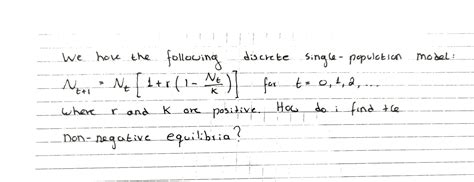 We have the following discrete single-population model:
N_{t+1} = N_t [1 + r (1 - N_t/K)] for t = 0, 1, 2, ...
where r and K are positive. How do i find the
non-negative equilibria?